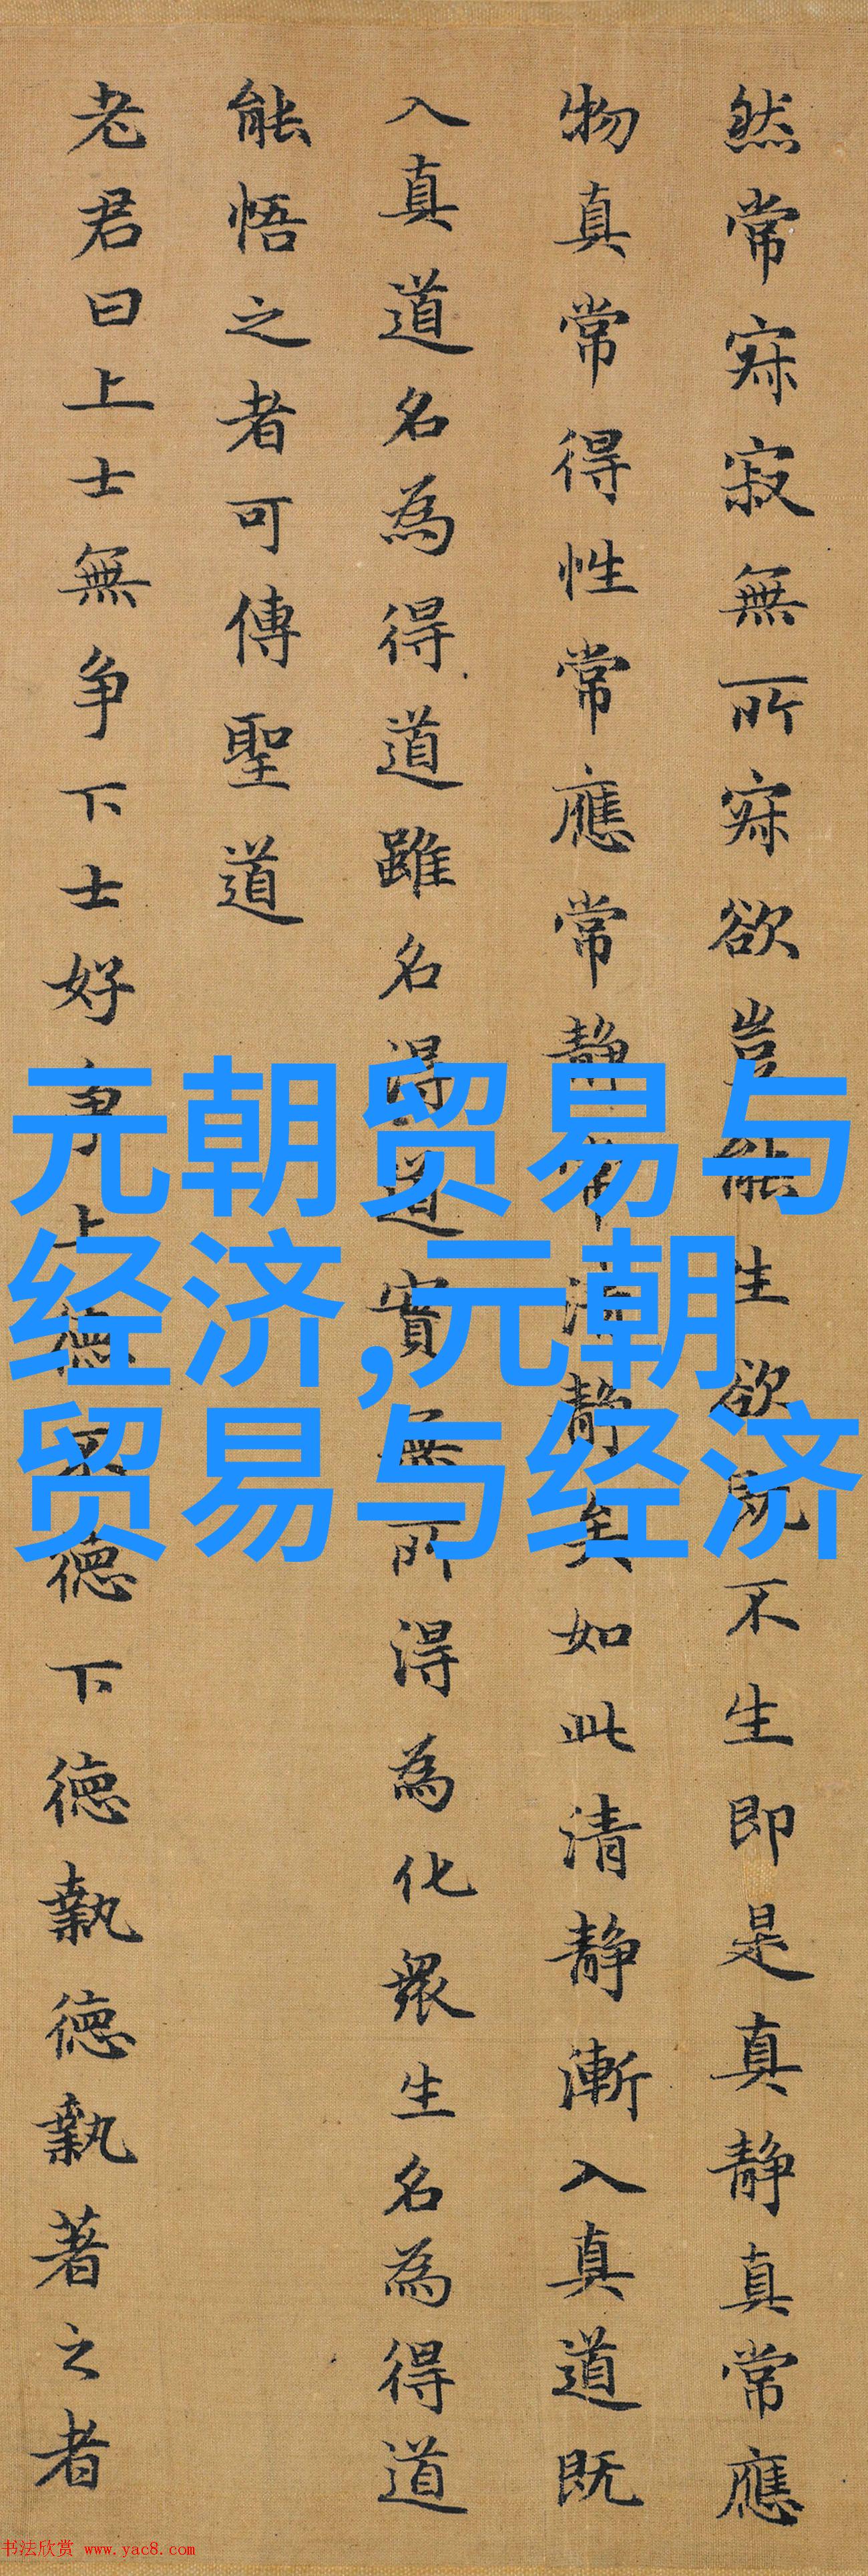 然常寂寂無所寂欲豈能生欲既不生即是真静真常應
物真常得性常應常静常清静矣如此清静漸入真道既
入真道名為得道雖名得道實無所得為化衆生名為得道
能悟之者可傳聖道
老君曰上士無争下士好争上德不德下德執德執著之者
元朝贸易与
经济,元朝
贸易与经济
书法欣赏 www.yac8.com